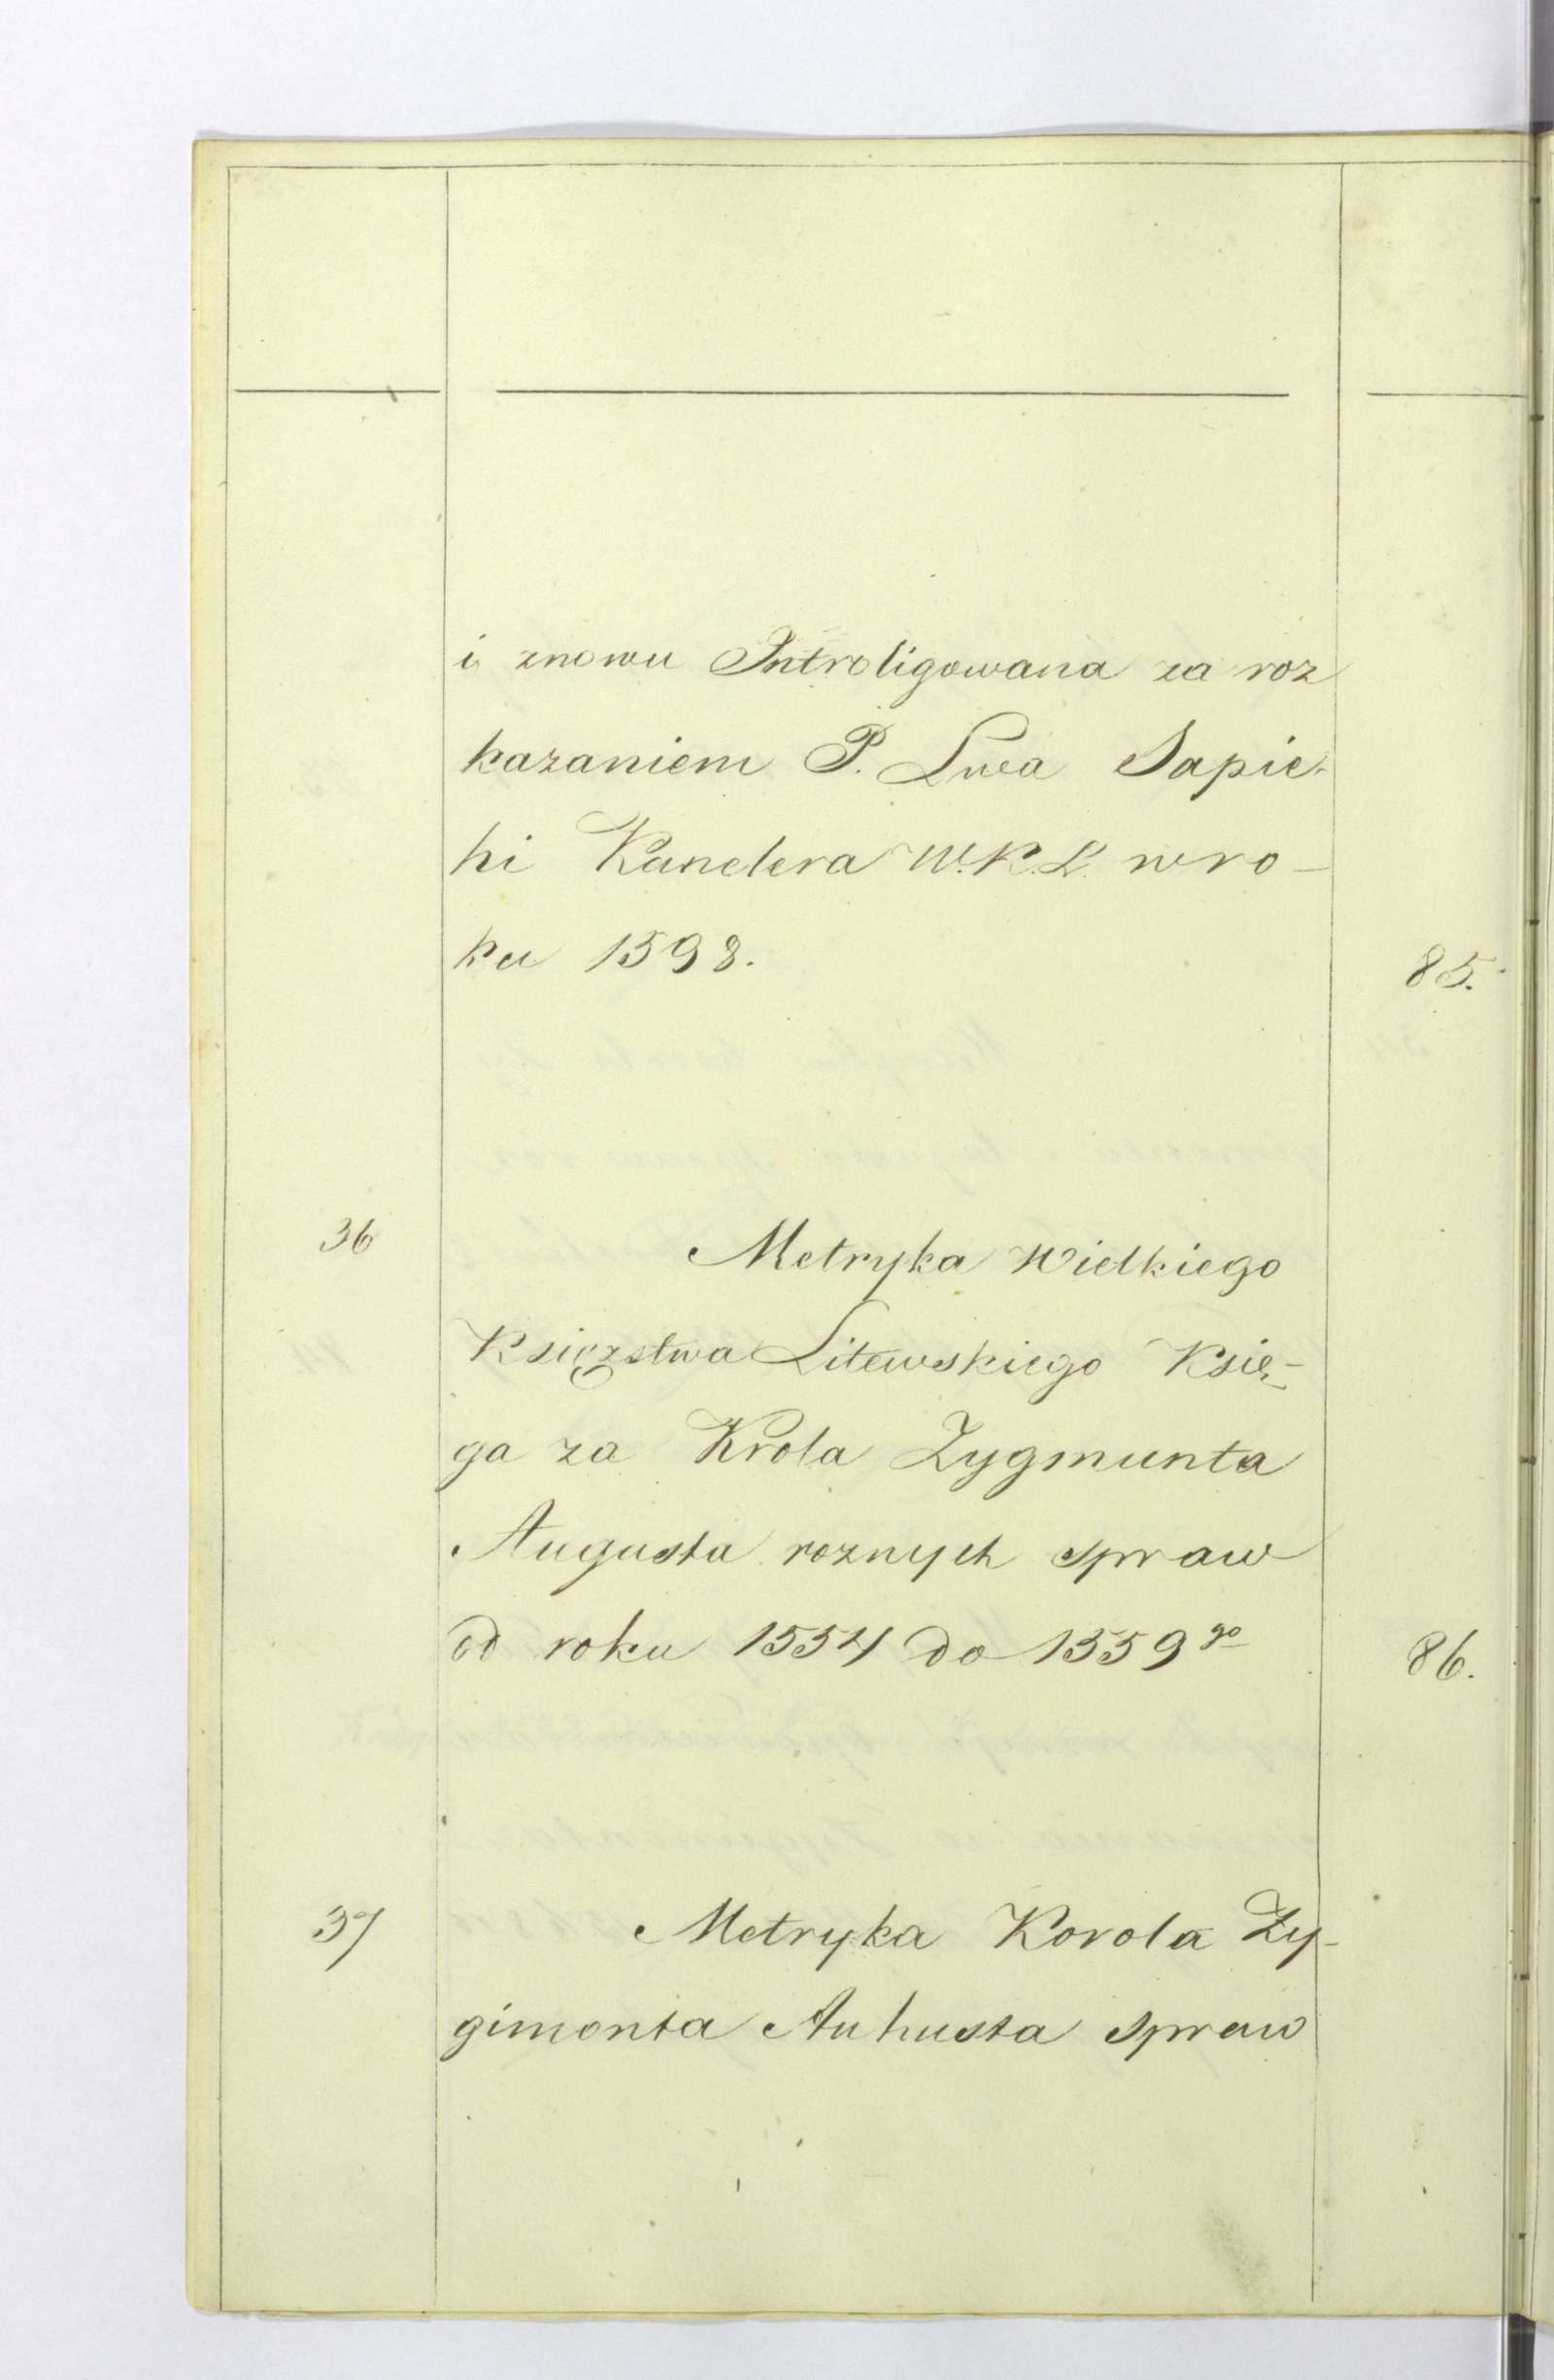 i znowu Introligowana za roz
kazaniem P. Lwa Sapie-
hi Kanclera W.K.L. w ro-
ku 1598.
85.
36
Metryka Wielkiego
Księzstwa Litewskiego Księ-
ga za Krola Zygmunta
Augusta roznych spraw
od roku 1554 do 1559 go
86.
37
Metryka Korola Zy-
gimonta Auhusta spraw